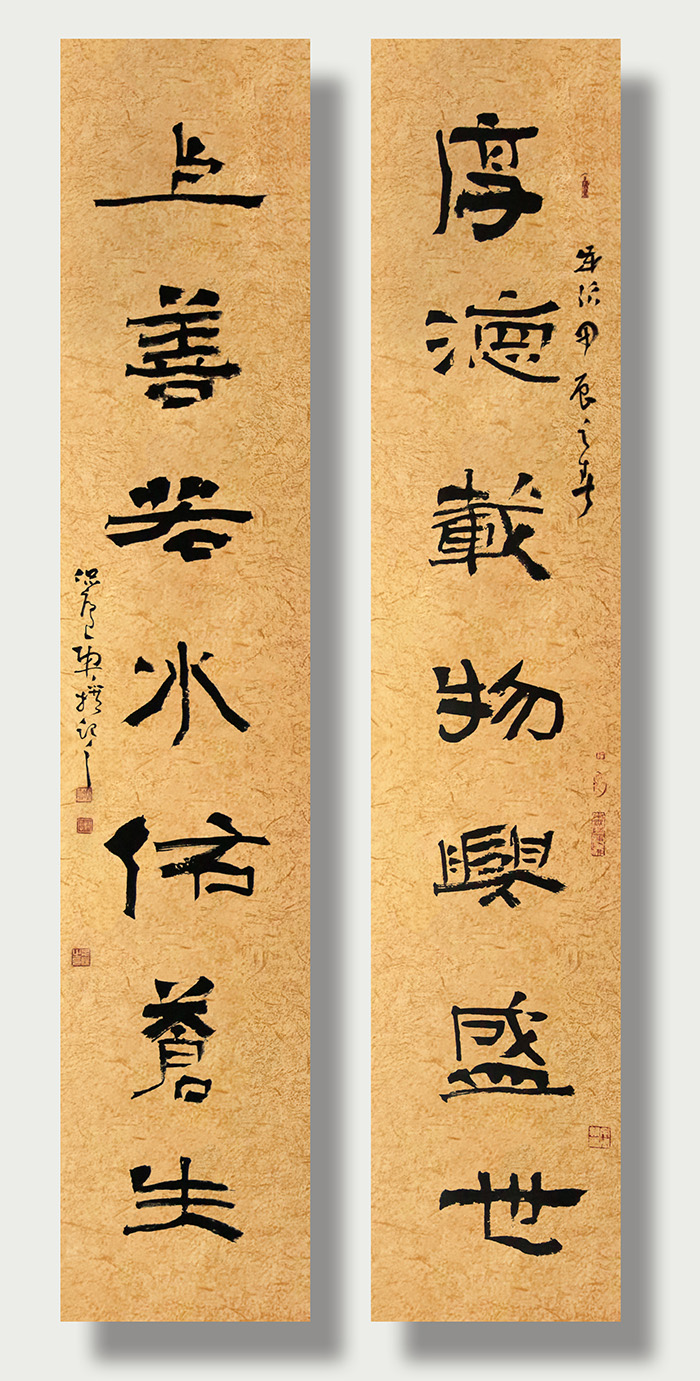 厚德載物興盛世
歲次甲辰之春
上善若水佑蒼生